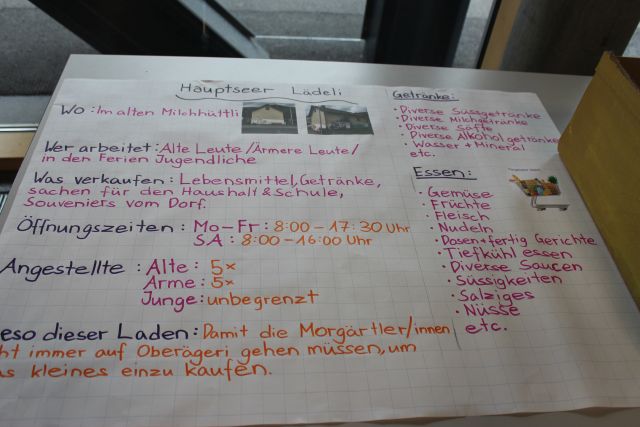 Hauptseer Lädeli
Wo: Im alten Milchhüttli
Wer arbeitet: Alte Leute/Ärmere Leute/
in den Ferien Jugendliche
Was verkaufen: Lebensmittel, Getränke,
sachen für den Haushalt & Schule,
Souveniers vom Dorf.
Öffnungszeiten: Mo-Fr: 8:00-17:30 Uhr
SA: 8:00-16:00 Uhr
Angestellte: Alte: 5x
Arme: 5x
Junge: unbegrenzt
eso dieser Laden: Damit die Morgärtler/innen
ht immer auf Oberägeri gehen müssen, um
s kleines einzu kaufen.
Getränke:
• Diverse Süssgetränke
• Diverse Milchgetränke
• Diverse Säfte
• Diverse Alkohol getränke
• Wasser + Mineral
etc.
Essen:
• Gemüse
• Früchte
• Fleisch
• Nudeln
• Dosen + fertig Gerichte
• Tiefkühl essen
• Diverse Saucen
• Süssigkeiten
• Salziges
• Nüsse
etc.